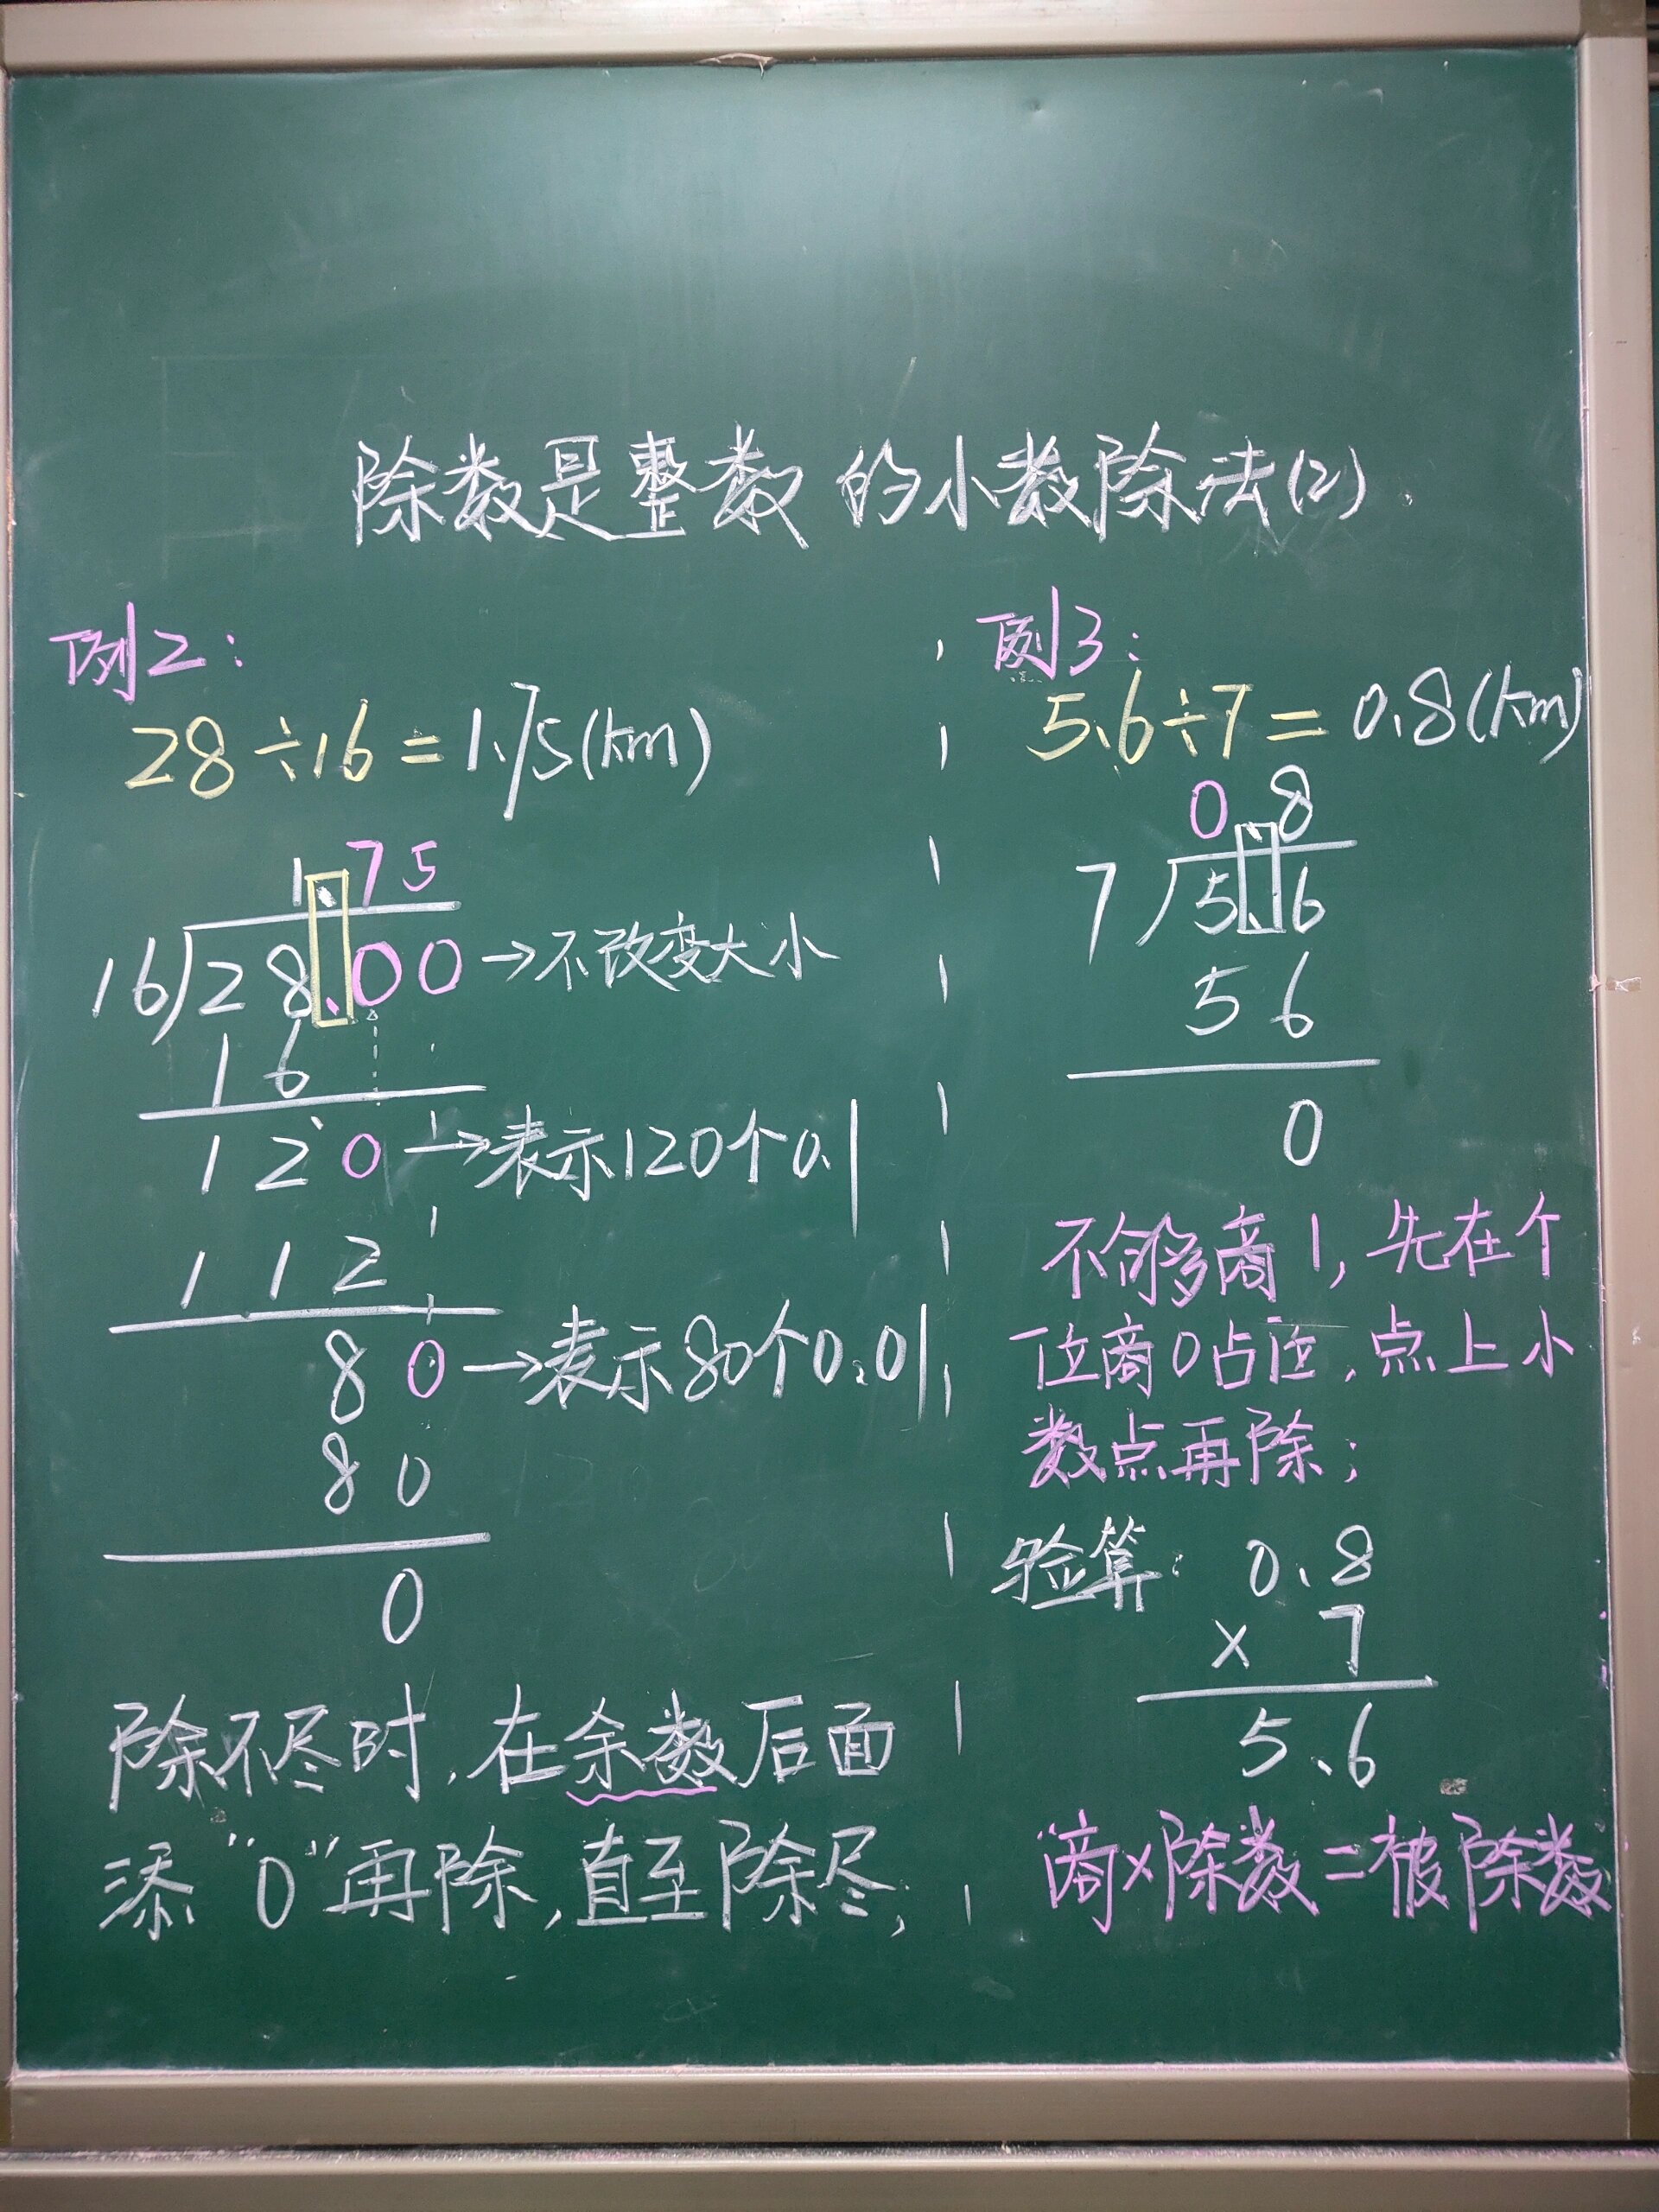 除数是整数的小数除法(2)
例2:
28÷16=1.75(km)
1.75
16)28.00→不改变大小
16
120→表示120个0.1
112
80→表示80个0.01
80
0
除不尽时,在余数后面
添“0”再除,直至除尽;
例3:
5.6÷7=0.8(km)
0.8
7)5.6
56
0
不够商1,先在个
位商0占位,点上小
数点再除;
验算: 0.8
× 7
5.6
“商×除数=被除数